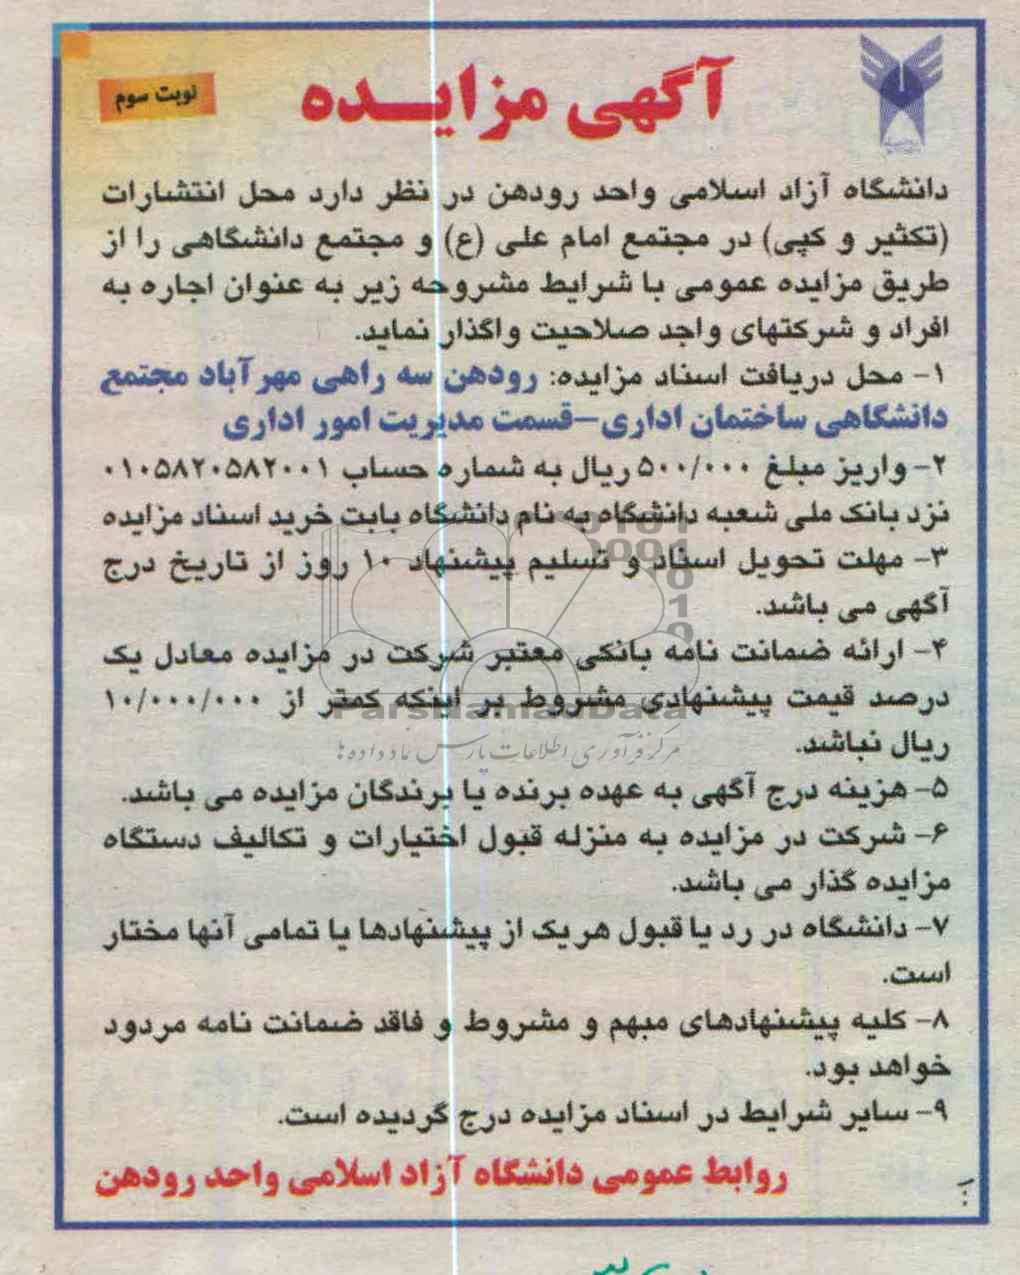 آگهی مزایـــده
نوبت سوم
دانشگاه آزاد اسلامی واحد رودهن در نظر دارد محل انتشارات
(تکثیر و کپی) در مجتمع امام علی (ع) و مجتمع دانشگاهی را از
طریق مزایده عمومی با شرایط مشروحه زیر به عنوان اجاره به
افراد و شرکتهای واجد صلاحیت واگذار نماید.
۱- محل دریافت اسناد مزایده: رودهن سه راهی مهرآباد مجتمع
دانشگاهی ساختمان اداری-قسمت مدیریت امور اداری
۲- واریز مبلغ ۵۰۰/۰۰۰ ریال به شماره حساب ۰۱۰۵۸۲۰۵۸۲۰۰۱
نزد بانک ملی شعبه دانشگاه به نام دانشگاه بابت خرید اسناد مزایده
۳- مهلت تحویل اسناد و تسلیم پیشنهاد ۱۰ روز از تاریخ درج
آگهی می باشد.
۴- ارائه ضمانت نامه بانکی معتبر شرکت در مزایده معادل یک
درصد قیمت پیشنهادی مشروط بر اینکه کمتر از ۱۰/۰۰۰/۰۰۰
ParsNamadData
ریال نباشد.
مرکز فرآوری اطلاعات پارس نماد داده ها
۵- هزینه درج آگهی به عهده برنده یا برندگان مزایده می باشد.
۶- شرکت در مزایده به منزله قبول اختیارات و تکالیف دستگاه
مزایده گذار می باشد.
۷- دانشگاه در رد یا قبول هر یک از پیشنهادها یا تمامی آنها مختار
است.
۸- کلیه پیشنهادهای مبهم و مشروط و فاقد ضمانت نامه مردود
خواهد بود.
۹- سایر شرایط در اسناد مزایده درج گردیده است.
روابط عمومی دانشگاه آزاد اسلامی واحد رودهن